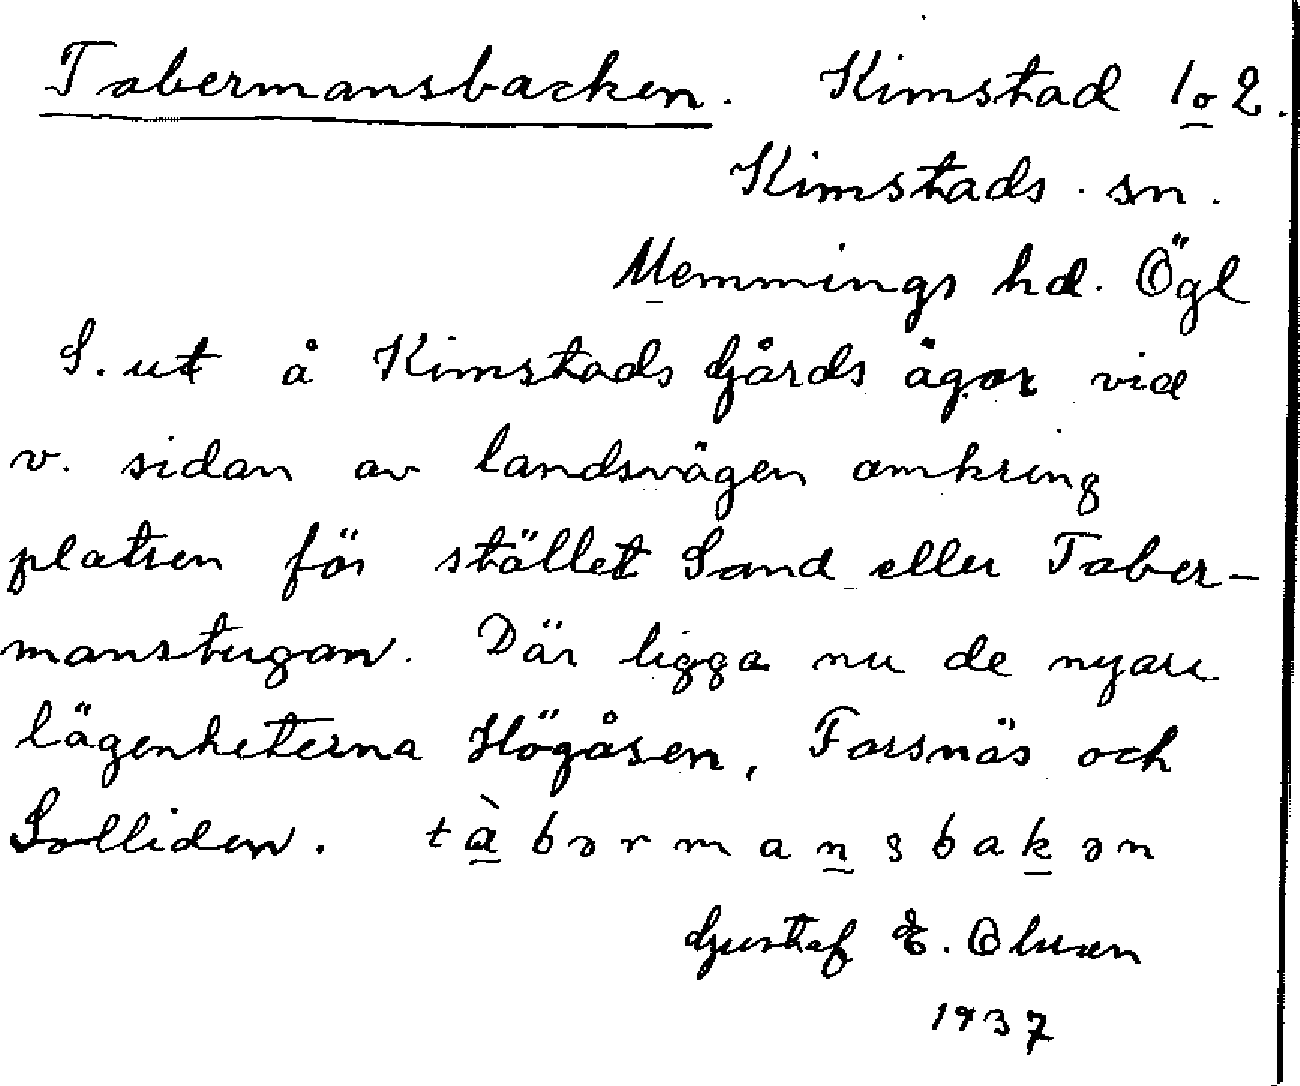 Tabermansbacken. Kimstad 1 o 2.
Kimstads sn.
Memmings hd. Ögl
S. ut å Kimstads Gårds ägor vid
v. sidan av landsvägen omkring
platsen för stället Sand eller Taber-
manstugan. Där ligga nu de nyare
lägenheterna Högåsen, Forsnäs och
Solliden. tàbərmansbakən
Gustaf E. Olsson
1937